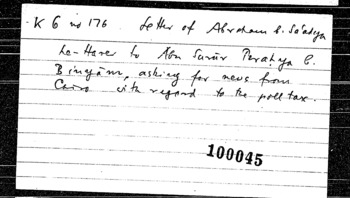 K 6 no 176. Letter of Abraham b. Sa'adya
ha-Haver to Abu Surūr Peraḥya b.
Binyām, asking for news from
Cairo with regard to the poll tax.
100045